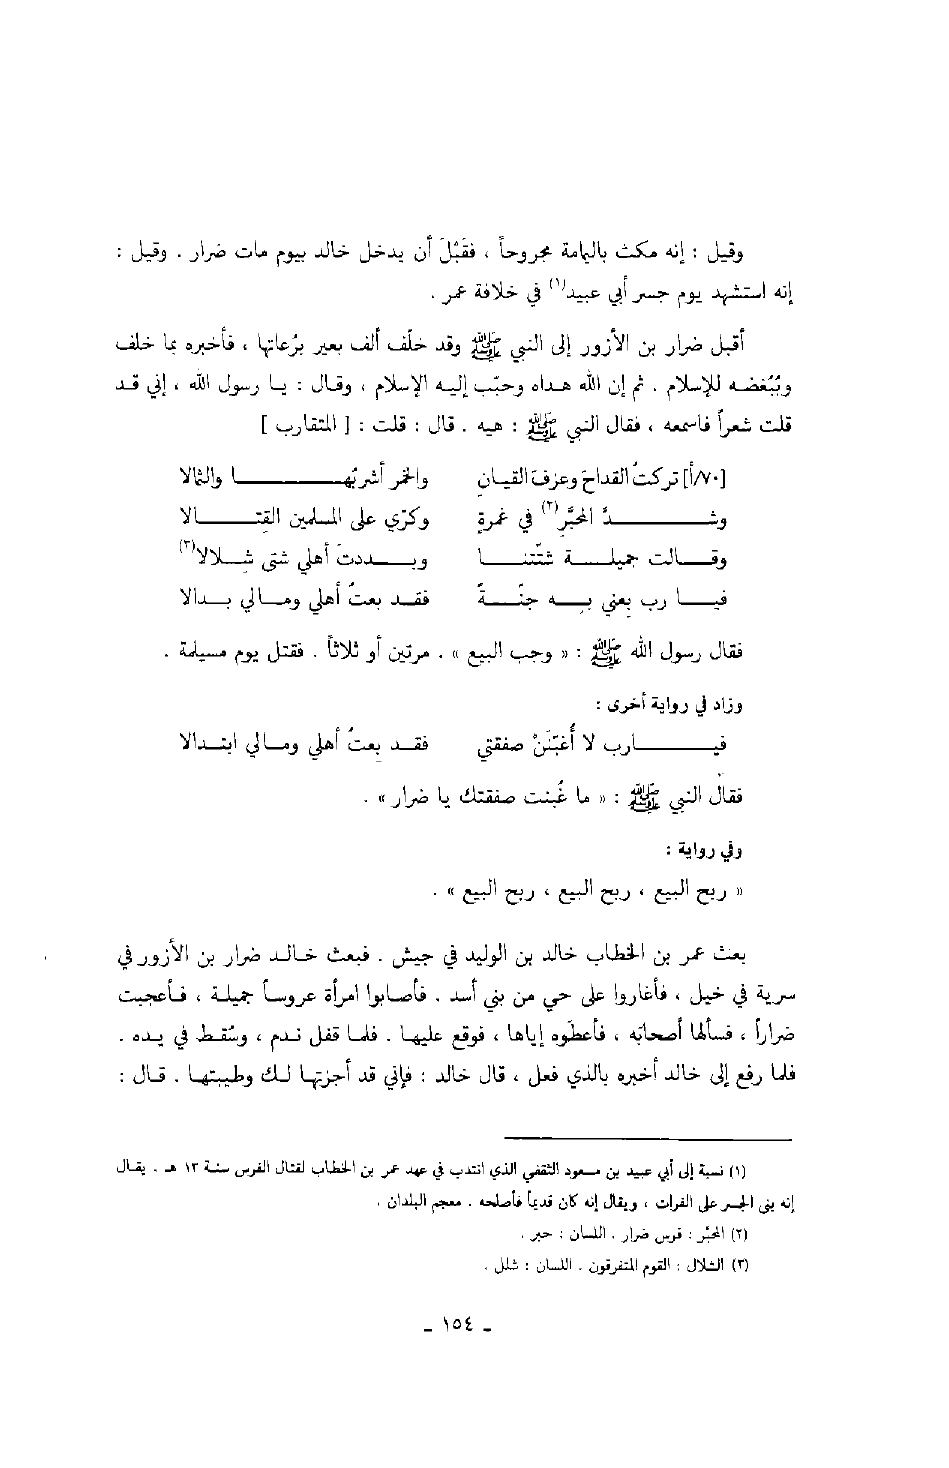 وقيل : إنه مكث باليمامة مجروحاً ، فقَبْلَ أن يدخل خالد بيوم مات ضرار . وقيل :
إنه استشهد يوم جسر أبي عبيد(١) في خلافة عمر .
أقبل ضرار بن الأزور إلى النبي ﷺ وقد خلّف ألف بعير برُعاتها ، فأخبره بما خلف
وبُبُغضه للإسلام . ثم إن الله هداه وحبّب إليه الإسلام ، وقال : يا رسول الله ، إني قد
قلت شعراً فاسمعه ، فقال النبي ﷺ : هيه . قال : قلت : [ المتقارب ]
[٧٠/أ] تركتُ القداحَ وعزفَ القيانِ والخمر أشربُها والثمالا
وشدَّ المحبَّرِ(٢) في غمرةٍ وكرّي على المسلمين القتالا
وقالت جميلة شتّتنا وبددتَ أهلي شتى شلالا(٣)
فيا رب بعني به جنّةً فقد بعتُ أهلي ومالي بدالا
فقال رسول الله ﷺ : « وجب البيع » . مرتين أو ثلاثاً . فقتل يوم مسيلمة .
وزاد في رواية أخرى :
فيارب لا أُغبَنَنْ صفقتي فقد بعتُ أهلي ومالي ابتدالا
فقال النبي ﷺ : « ما غُبنت صفقتك يا ضرار » .
وفي رواية :
« ربح البيع ، ربح البيع ، ربح البيع » .
بعث عمر بن الخطاب خالد بن الوليد في جيش . فبعث خالد ضرار بن الأزور في
سرية في خيل ، فأغاروا على حي من بني أسد . فأصابوا امرأة عروساً جميلة ، فأعجبت
ضراراً ، فسألها أصحابَه ، فأعطَوه إياها ، فوقع عليها . فلما قفل ندم ، وسُقط في يده .
فلما رفع إلى خالد أخبره بالذي فعل ، قال خالد : فإني قد أجزتها لك وطيبتها . قال :
(١) نسبة إلى أبي عبيد بن مسعود الثقفي الذي انتدب في عهد عمر بن الخطاب لقتال الفرس سنة ١٣ هـ . يقال
إنه بنى الجسر على الفرات ، ويقال إنه كان قديماً فأصلحه . معجم البلدان .
(٢) المحبَّر : فرس ضرار . اللسان : حبر .
(٣) الشلال : القوم المتفرقون . اللسان : شلل .
ـ ١٥٤ ـ